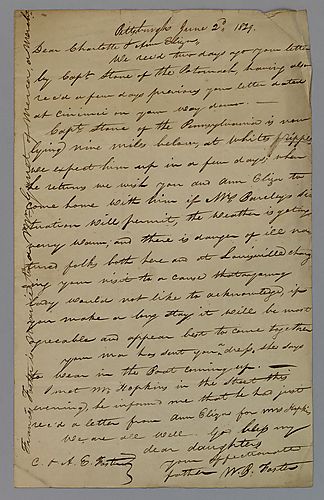 Pittsburgh June 2d, 1829.
Dear Charlotte & Ann Eliza,
We rec'd two days ago your letter
by Capt. Stone of the Potomack, having also
rec'd a few days previous your letter dated
at Cincinnati on your way down. —
Capt. Stone of the Pennsylvania is now
lying nine miles below, at White's ripple
we expect him up in a few days, when
he returns we wish you and Ann Eliza to
come home with him if Mrs Barclays
situation will permit, the weather is getting
verry warm, and there is danger of ill na
tured folks both here and at Louisville charg
ing your visit to a cause that a young
lady would not like to acknowledge, if
you make a long stay it will be most
agreeable and appear best to come together
your ma has sent you a dress, she says
to wear in the Boat coming up. —
I met Mr Hopkins in the street this
evening, he informed me that he has just
rec'd a letter from Ann Eliza for Mrs Hopkins
We are all well. God bless my
dear daughters
C. & A. E. Foster
your affectionate
father W. B. Foster